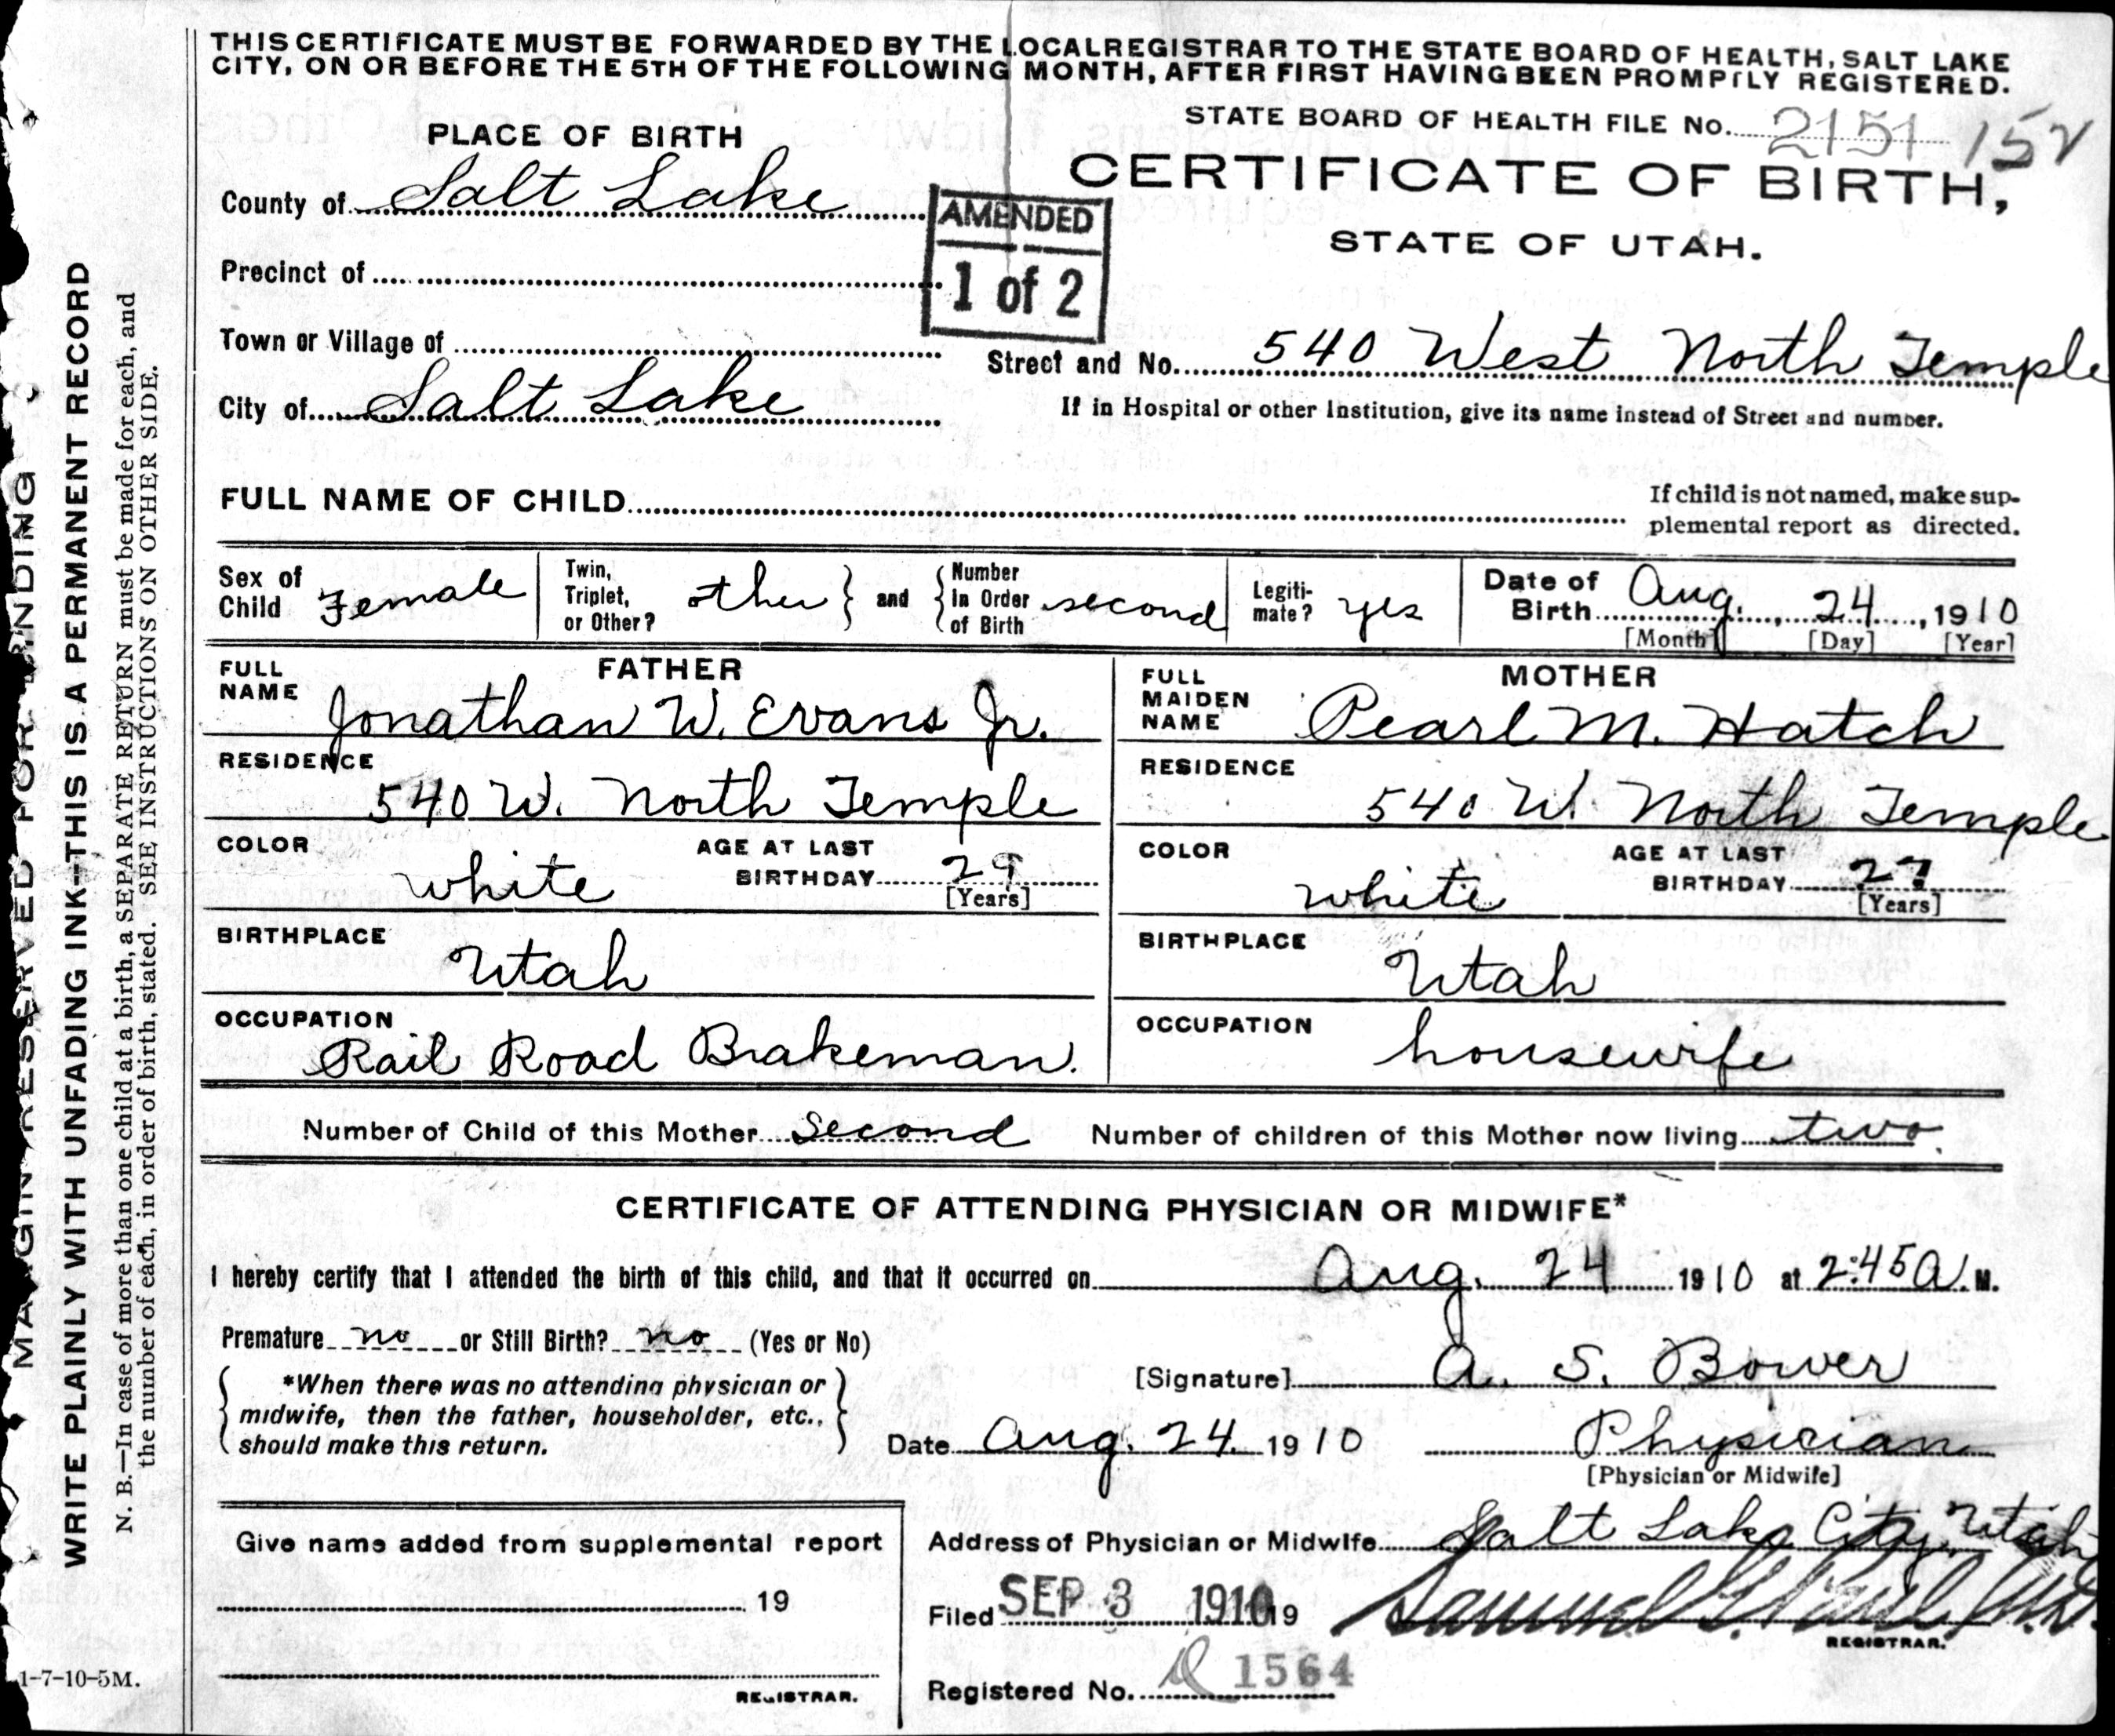 THIS CERTIFICATE MUST BE FORWARDED BY THE LOCAL REGISTRAR TO THE STATE BOARD OF HEALTH, SALT LAKE
CITY, ON OR BEFORE THE 5TH OF THE FOLLOWING MONTH, AFTER FIRST HAVING BEEN PROMPTLY REGISTERED.
STATE BOARD OF HEALTH FILE No. 2151 152
CERTIFICATE OF BIRTH,
STATE OF UTAH.
PLACE OF BIRTH
County of Salt Lake
AMENDED
1 of 2
Precinct of
Town or Village of
Street and No. 540 West North Temple
City of Salt Lake
If in Hospital or other Institution, give its name instead of Street and number.
FULL NAME OF CHILD
If child is not named, make sup-
plemental report as directed.
Sex of Child Female
Twin, Triplet, or Other? other
and
Number in Order of Birth second
Legiti-mate? yes
Date of Birth Aug. 24, 1910
[Month] [Day] [Year]
FATHER
FULL NAME Jonathan W. Evans Jr.
RESIDENCE
540 W. North Temple
COLOR white
AGE AT LAST BIRTHDAY 29
[Years]
BIRTHPLACE
Utah
OCCUPATION
Rail Road Brakeman.
MOTHER
FULL MAIDEN NAME Pearl M. Hatch
RESIDENCE
540 W. North Temple
COLOR white
AGE AT LAST BIRTHDAY 27
[Years]
BIRTHPLACE
Utah
OCCUPATION
housewife
Number of Child of this Mother Second Number of children of this Mother now living two.
CERTIFICATE OF ATTENDING PHYSICIAN OR MIDWIFE*
I hereby certify that I attended the birth of this child, and that it occurred on Aug. 24 1910 at 2:45 A. M.
Premature no or Still Birth? no (Yes or No)
*When there was no attending physician or
midwife, then the father, householder, etc.,
should make this return.
[Signature] A. S. Bower
Date Aug. 24. 1910 Physician
[Physician or Midwife]
Give name added from supplemental report
19
REGISTRAR.
Address of Physician or Midwife Salt Lake City, Utah
Filed SEP 3 1910 19 Samuel G. Paul M.D.
REGISTRAR.
Registered No. 1564
MARGIN RESERVED FOR BINDING
WRITE PLAINLY WITH UNFADING INK—THIS IS A PERMANENT RECORD
N. B.—In case of more than one child at a birth, a SEPARATE RETURN must be made for each, and
the number of each, in order of birth, stated. SEE INSTRUCTIONS ON OTHER SIDE.
1-7-10-5M.